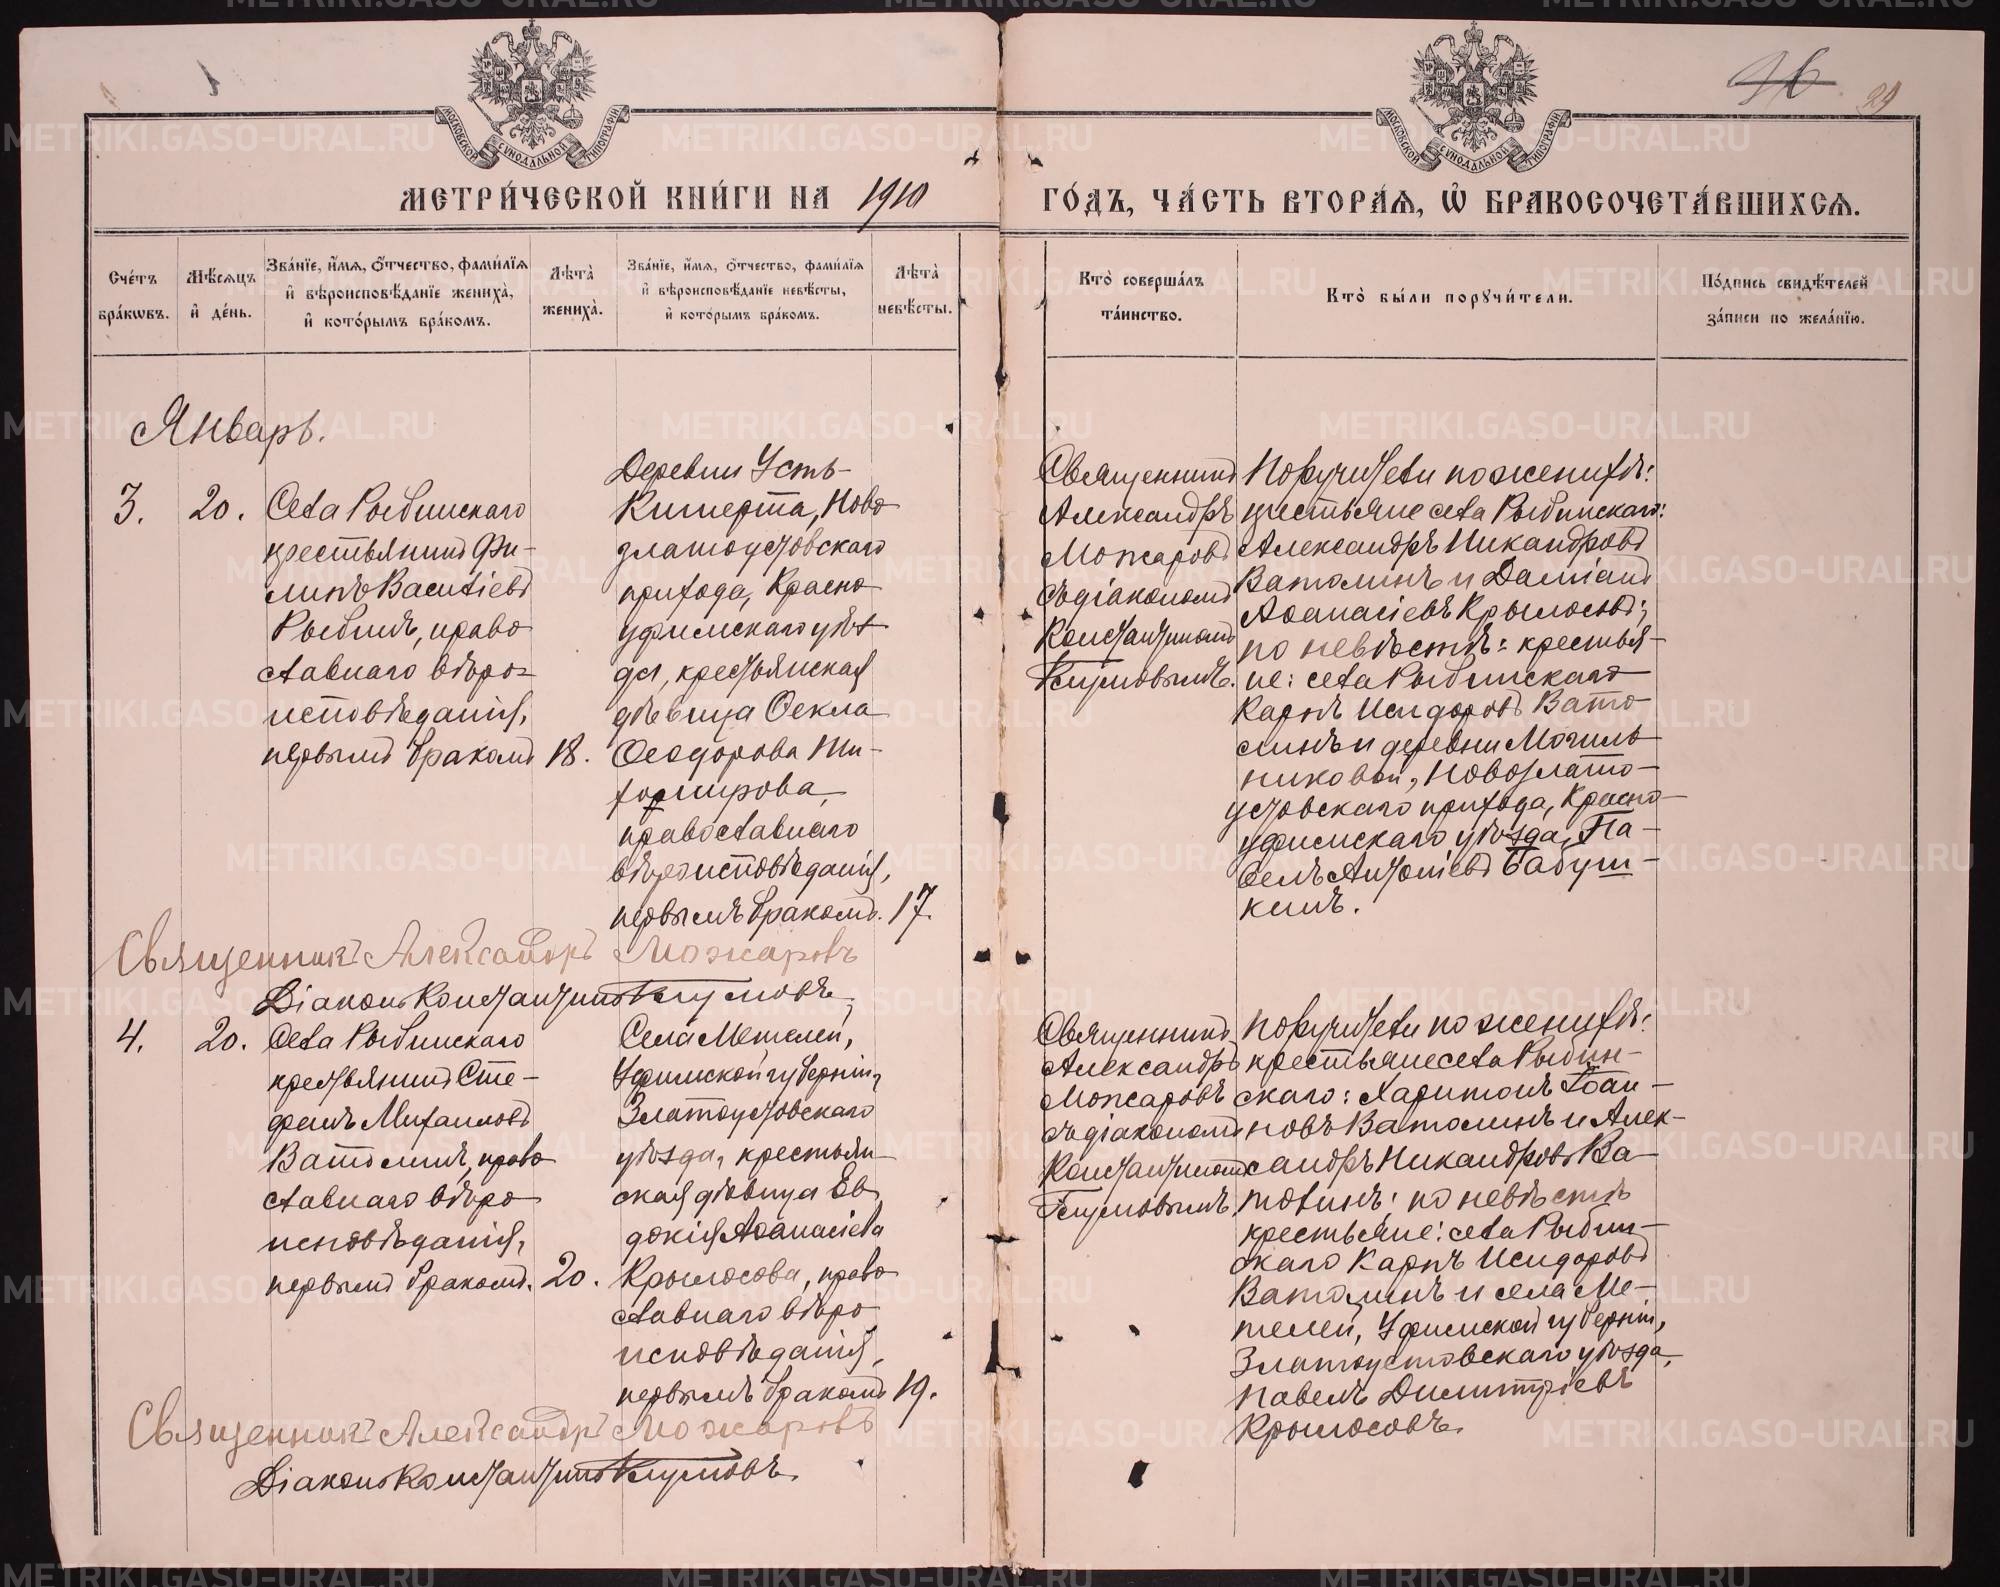 36 39
МОСКОВСКОЙ СѴНОДАЛЬНОЙ ТИПОГРАФІИ
МОСКОВСКОЙ СѴНОДАЛЬНОЙ ТИПОГРАФІИ
МЕТРИ́ЧЕСКОЙ КНИ́ГИ НА 1910 ГО́ДЪ, ЧА́СТЬ ВТОРА́Ѧ, Ѡ҆ БРАКОСОЧЕТА́ВШИХСѦ.
Сче́тъ бра́кѡвъ.
Мѣ́сѧцъ и҆ де́нь.
Зва́нїе, и҆́мѧ, ѻ҆́тчество, фами́лїѧ
и҆ вѣроисповѣ́данїе жениха̀,
и҆ кото́рымъ бра́комъ.
Лѣта̀ жениха̀.
Зва́нїе, и҆́мѧ, ѻ҆́тчество, фами́лїѧ
и҆ вѣроисповѣ́данїе невѣ́сты,
и҆ кото́рымъ бра́комъ.
Лѣта̀ невѣ́сты.
Кто̀ соверша́лъ та́инство.
Кто̀ бы́ли порꙋчи́тели.
По́дпись свидѣ́телей
за́писи по жела́нїю.
Январь.
3.
20.
Села Рыбинскаго
крестьянинъ Фи-
липъ Василіевъ
Рыбинъ, право
славнаго вѣро-
исповѣданія,
первымъ бракомъ
18.
Деревни Усть-
Кишерта, Ново
златоустовскаго
прихода, Красно
уфимскаго уѣз
да, крестьянская
дѣвица Ѳекла
Ѳеодорова Ти-
хомирова,
православнаго
вѣроисповѣданія,
первымъ бракомъ.
17.
Священникъ
Александръ
Можаровъ
съ діакономъ
Константиномъ
Поручители по женихѣ:
крестьяне села Рыбинскаго:
Александръ Никандровъ
Ватолинъ и Даміанъ
Аѳанасіевъ Крылосовъ;
по невѣстѣ: крестья-
не: села Рыбинскаго
Карпъ Исидоровъ Вато
линъ и деревни Могиль
никовой, Новозлато-
устовскаго прихода, Красно-
уфимскаго уѣзда, Па-
велъ Антоніевъ Бабуш-
кинъ.
Священникъ Александръ Можаровъ
Діаконъ Константинъ
4.
20.
Села Рыбинскаго
крестьянинъ Сте-
фанъ Михаиловъ
Ватолинъ, право
славнаго вѣро
исповѣданія,
первымъ бракомъ.
20.
Села Метелей,
Уфимской губерніи,
Златоустовскаго
уѣзда, крестьян-
ская дѣвица Ев
докія Аѳанасіева
Крылосова, право
славнаго вѣро
исповѣданія,
первымъ бракомъ
19.
Священникъ
Александръ
Можаровъ
съ діакономъ
Константиномъ
Поручители по женихѣ:
крестьяне села Рыбин-
скаго: Харитонъ Іоан-
новъ Ватолинъ и Алек-
сандръ Никандровъ Ва-
толинъ; по невѣстѣ
крестьяне: села Рыбин-
скаго Карпъ Исидоровъ
Ватолинъ и села Ме-
телей, Уфимской губерніи,
Златоустовскаго уѣзда,
Павелъ Димитріевъ
Крылосовъ.
Священникъ Александръ Можаровъ
Діаконъ Константинъ
METRIKI.GASO-URAL.RU